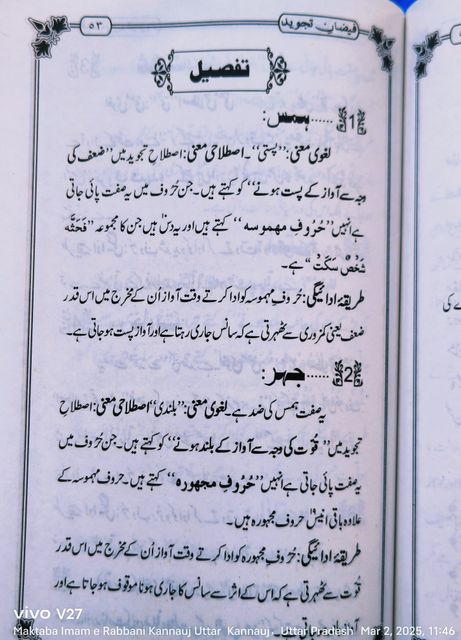 فیضانِ تجوید
۵۳
تفصیل
﴿1﴾......ہمس:
لغوی معنی: ’’پستی‘‘۔ اصطلاحی معنی: اصطلاحِ تجوید میں ’’ضعف کی
وجہ سے آواز کے پست ہونے‘‘ کو کہتے ہیں۔ جن حُرُوف میں یہ صفت پائی جاتی
ہے انہیں ’’حُرُوفِ مهموسه‘‘ کہتے ہیں اور یہ دس ہیں جن کا مجموعہ ’’فَحَثَّهٗ
شَخْصٌ سَكَتْ‘‘ ہے۔
طریقۂ ادائیگی: حُرُوفِ مہموسہ کو ادا کرتے وقت آواز اُن کے مخرج میں اس قدر
ضعف یعنی کمزوری سے ٹھہرتی ہے کہ سانس جاری رہتا ہے اور آواز پست ہو جاتی ہے۔
﴿2﴾......جہر:
یہ صفت ہمس کی ضد ہے۔ لغوی معنی: ’’بلندی‘‘ اصطلاحی معنی: اصطلاحِ
تجوید میں ’’قُوّت کی وجہ سے آواز کے بلند ہونے‘‘ کو کہتے ہیں۔ جن حُرُوف میں
یہ صفت پائی جاتی ہے انہیں ’’حُرُوفِ مجهوره‘‘ کہتے ہیں۔ حروفِ مہموسہ کے
علاوہ باقی اُنیس ۱۹ حروف مجہورہ ہیں۔
طریقۂ ادائیگی: حُرُوفِ مجہورہ کو ادا کرتے وقت آواز اُن کے مخرج میں اس قدر
قُوّت سے ٹھہرتی ہے کہ اس کے اثر سے سانس کا جاری ہونا موقوف ہو جاتا ہے اور
vivo V27
Maktaba Imam e Rabbani Kannauj Uttar Kannauj, Uttar Pradesh Mar 2, 2025, 11:46